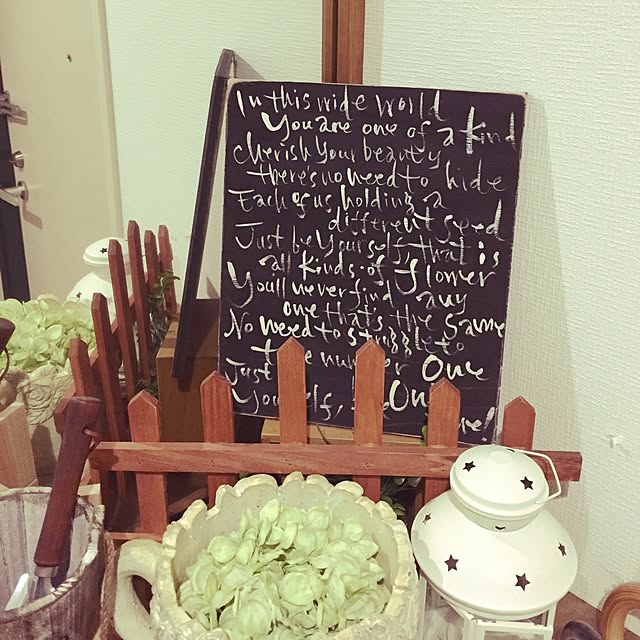 In this wide world
You are one of a kind
cherish your beauty
there's no need to hide
Each of us holding a
different seed
Just be yourself, that is
all kinds of flower
You'll never find any
one that's the same
No need to struggle to
number One
Just
One